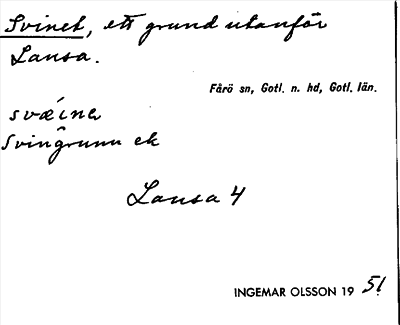 Svinet, ett grund utanför
Lansa.
Fårö sn, Gotl. n. hd, Gotl. län.
svǽinə
Svingrunn ek
Lansa 4
INGEMAR OLSSON 19 51